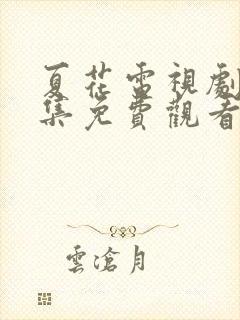 夏花雷視劇
集免費觀看
雲滄月